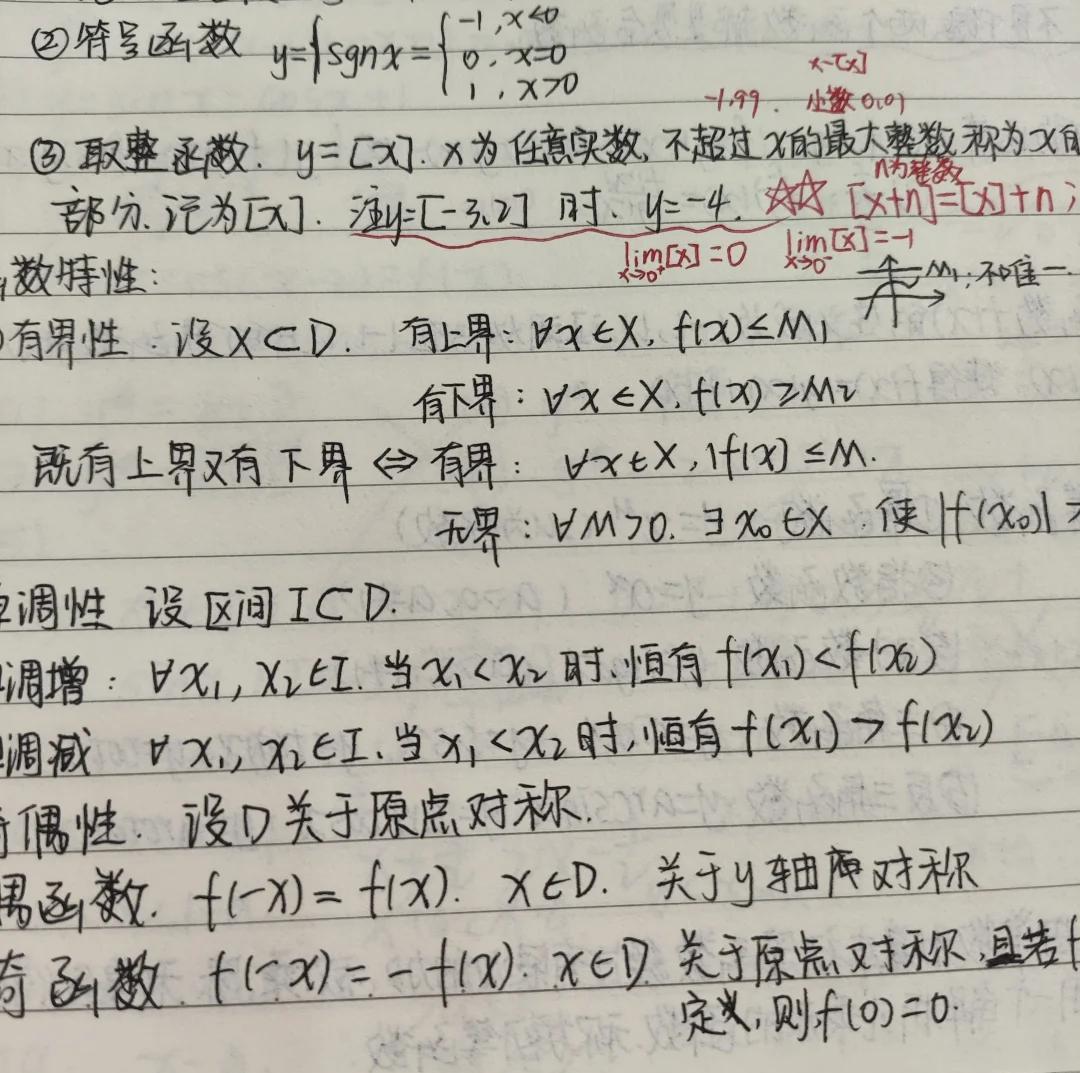 ②符号函数 y={sgnx={-1,x<0
0,x=0
1,x>0
x-[x]
-1.99. 小数
③取整函数. y=[x]. x为任意实数,不超过x的最大整数称为x
n为整数
部分.记为[x]. 注y=[-3.2]时. y=-4. ☆☆ [x+n]=[x]+n;
lim x→0⁺ [x]=0 lim x→0⁻ [x]=-1
数特性: M₁,不唯一.
有界性 设X⊂D. 有上界:∀x∈X, f(x)≤M₁
有下界:∀x∈X, f(x)≥M₂
既有上界又有下界⇔有界: ∀x∈X, |f(x)≤M.
无界:∀M>0. ∃x₀∈X. 使|f(x₀)|>
调性 设区间I⊂D.
调增:∀x₁,x₂∈I.当x₁<x₂时.恒有f(x₁)<f(x₂)
调减 ∀x₁,x₂∈I.当x₁<x₂时,恒有f(x₁)>f(x₂)
偶性. 设D关于原点对称.
偶函数. f(-x)=f(x). x∈D. 关于y轴对称
奇函数. f(-x)=-f(x). x∈D. 关于原点对称,且若f
定义,则f(0)=0.